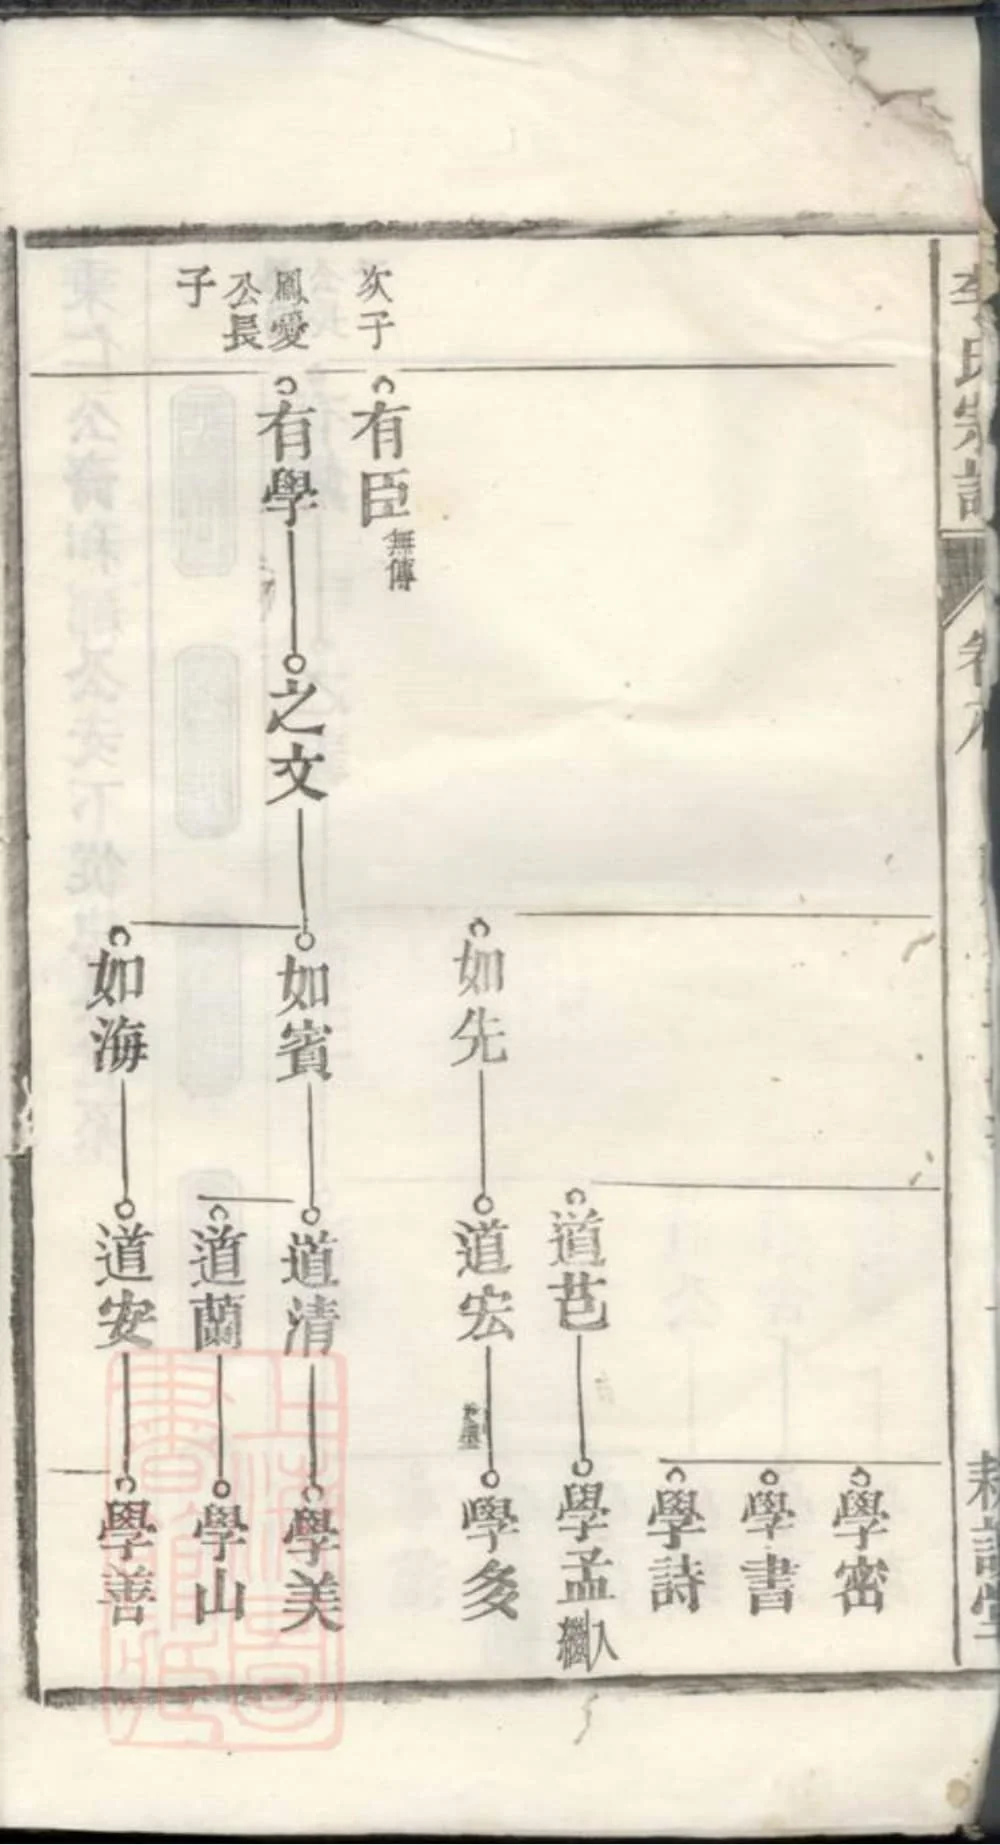 李氏宗譜
卷六
耕讀堂
學密
學書
學詩
道芑
學孟
入
如先
道宏
學多
次子
有臣
無傳
鳳愛
公長
子
有學
之文
如賓
道清
學美
道蘭
學山
如海
道安
學善
上海圖
書館藏